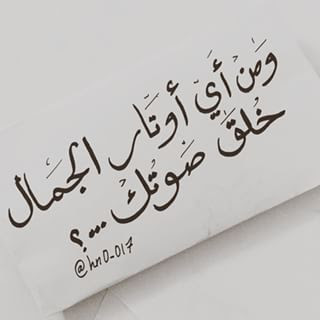 وَمِنْ أَيِّ أَوتَارِ الجَمَال
خُلِقَ صَوتُكْ ...؟
@hn0-017